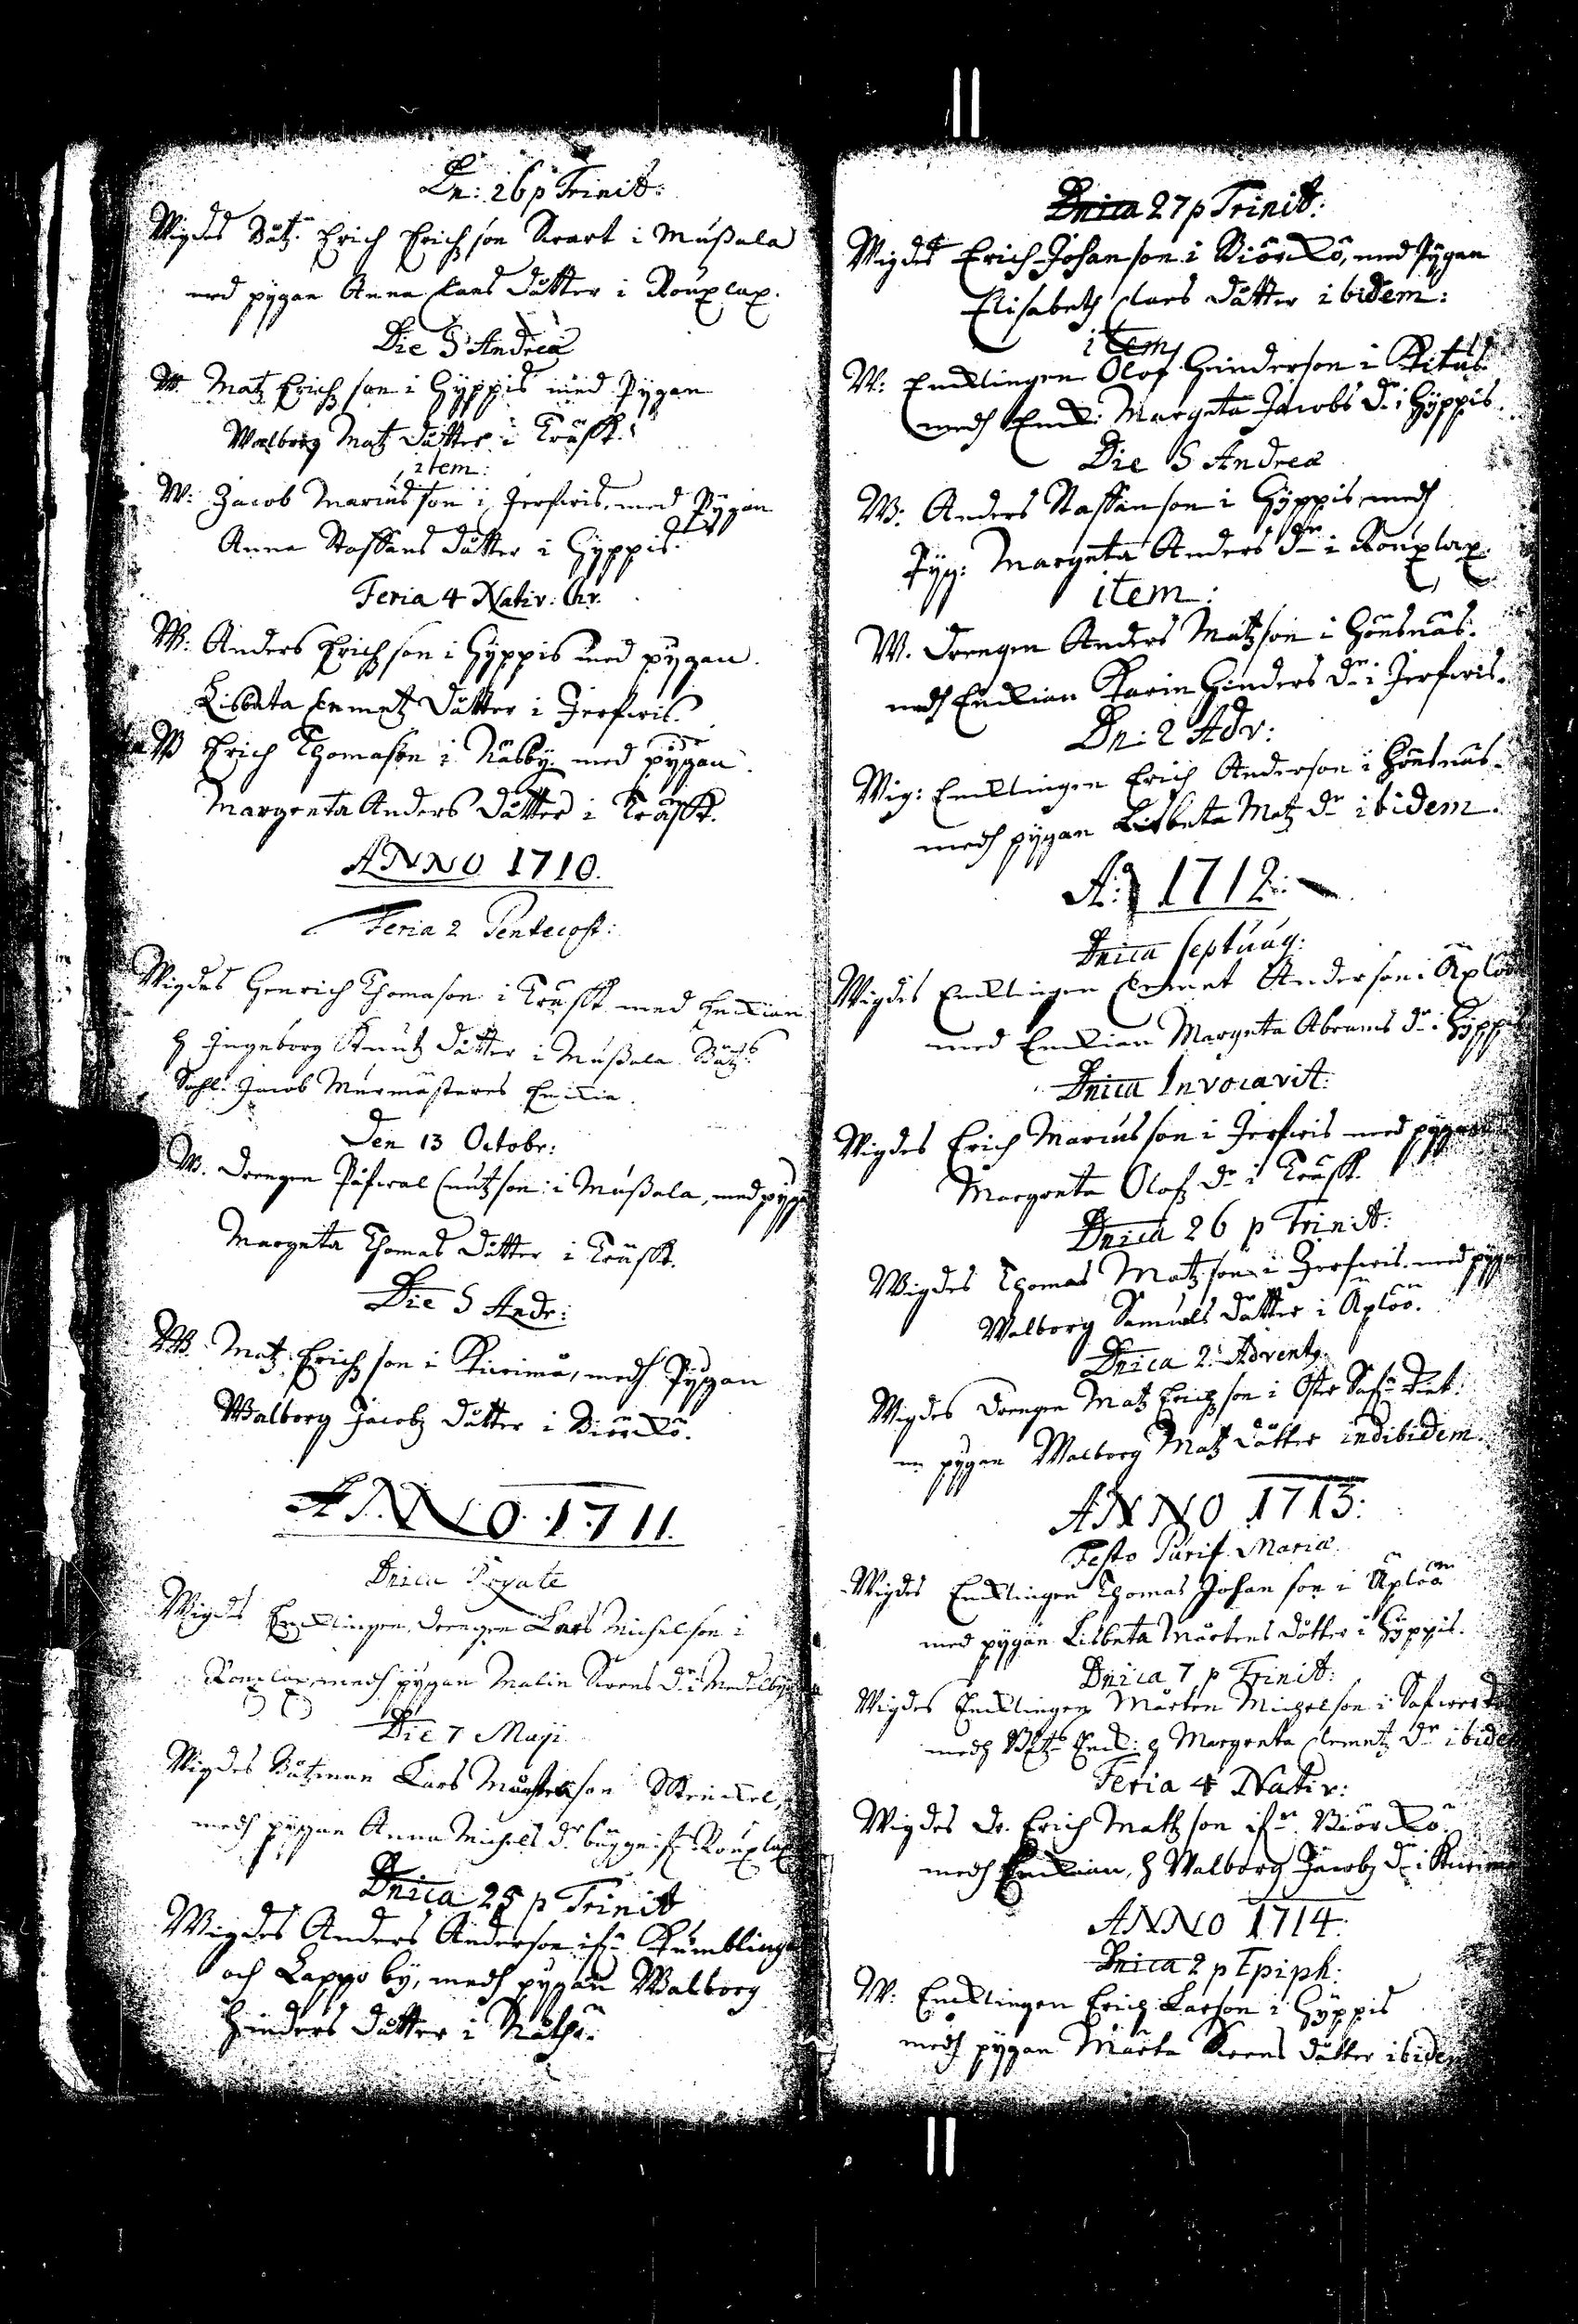 Dn: 26 p Trinit:
Wigdes Båtz: Erich Erichson Svart i Mussala
med pygan Anna Clas dåtter i Rouxlax.
Die S Andreæ
W. Matz Erichson i Hyppis med Pygan
Walborg Matz dåtter i Träsk.
item:
W: Jacob Mariusson i Jerfwis, med Pygan
Anna Staffans dåtter i Hyppis.
Feria 4 Nativ: Chr.
W. Anders Erichson i Hyppis med pygan
Lisbeta Clemetz dåtter i Jerfwis.
W Erich Thomason i Näsby med pygan
Margreta Anders dåtter i Träsk.
ANNO 1710.
Feria 2 Pentecost:
Wigdes Henrich Thomason i Träsk med Enkian
H Ingeborg Knutz dåtter i Mussala Båtz:
Sahl. Jacob Murmästares Enkia.
Den 13 Octobr:
W. Drengen Påfwal Cnutzson i Mussala, med pyga
Margeta Thomas dåtter i Träsk.
Die S Andr:
W. Matz Erichson i Kivima, medh Pygan
Walborg Jacobz dåtter i Biörkö.
ANNO 1711.
Dnica Rogate
Wigdes Enklingen Drengen Lars Michelson i
Rouxlax, medh pygan Malin Svens dr i Medelby
Die 7 Maji
Wigdes Båtzman Lars Mårtenson
medh pygan Anna Michels dr Rouxlax
Dnica 25 p Trinit
Wigdes Anders Anderson ifrn Kumblinge
och Lappo by, medh pygan Walborg
Hinders dåtter i
Dnica 27 p Trinit:
Wigdes Erich Johanson i Biörkö, med Pygan
Elisabeth Clars dåtter ibidem:
item
W: Enklingen Olof Hinderson i Kitus
medh Enk: Margeta Jacobs dr i Hyppis.
Die S Andreæ
W: Anders Staffanson i Hyppis medh
Pyg: Margeta Anders dr i Rouxlax.
item:
W. Drengen Anders Matzson i Hönsnäs.
medh Enkian Karin Hinders dr i Jerfwis.
Dn: 2 Adv:
Wig: Enklingen Erich Anderson i Hönsnäs
medh pygan Lisbeta Matz dr ibidem.
A: 1712:
Dnica Septuag:
Wigdes Enklingen Clemet Anderson i Äplöö
med Enkian Margeta Abrams dr i Hyppis
Dnica Invocavit:
Wigdes Erich Mariusson i Jerfwis med pygan
Margreta Olofz dr i Träsk.
Dnica 26 p Trinit:
Wigdes Thomas Matzson i Jerfwis med pygan
Walborg Samuels dåtter i Äplöö.
Dnica 2 Advent:
Wigdes Drengen Matz Erichson i Öster
m pygan Walborg Matz dåtter indibidem.
ANNO 1713:
Festo Purif. Mariæ
Wigdes Enklingen Thomas Johanson i Äplöö
med pygan Lisbeta Mårtens dåtter i Hyppis.
Dnica 7 p Trinit:
Wigdes Enklingen Mårten Michelson i
medh Båtz Enk: H Margreta Clemetz dr ibidem
Feria 4 Nativ:
Wigdes Dr. Erich Mattzson ifrn Biörkö
medh Enkian, H Walborg Jacobz dr i Kivima
ANNO 1714.
Dnica 2 p Epiph:
W: Enklingen Erich Larson i Hyppis
medh pygan Märta Svens dåtter ibidem